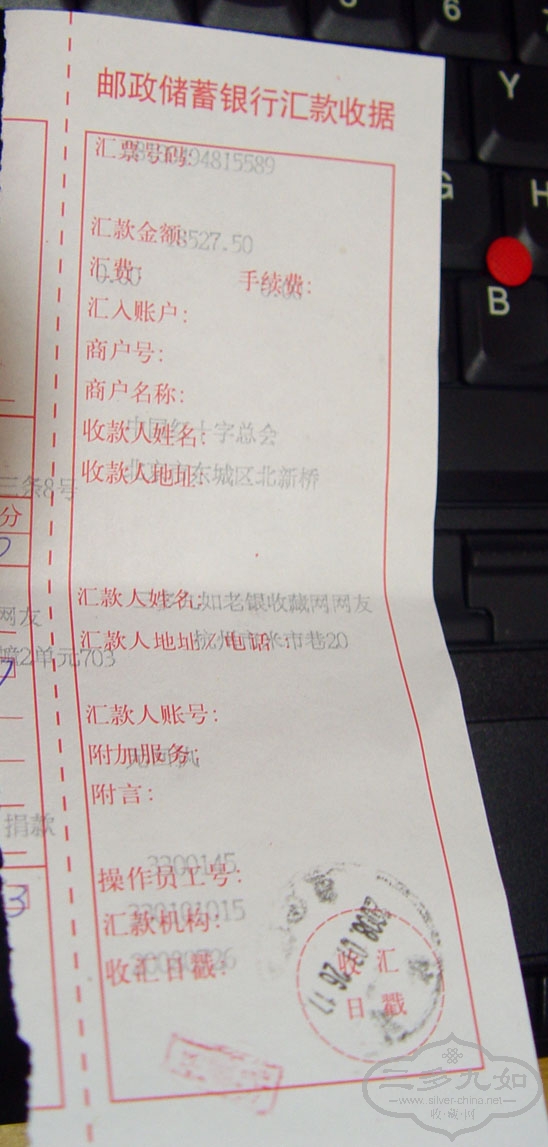 6
Y
G
H
B
邮政储蓄银行汇款收据
汇票号码: 04815589
汇款金额: 8527.50
汇费: 0.00 手续费: 0.00
汇入账户:
商户号:
商户名称:
收款人姓名: 中国红十字总会
收款人地址: 北京市东城区北新桥
三条8号
分
汇款人姓名: 三多九如老银收藏网网友
网友
汇款人地址: 杭州市米市巷20 电话:
2单元703
汇款人账号:
附加服务:
附言:
捐款
操作员工号: 3300145
汇款机构: 330101015
收汇日戳:
3
2008. 26 17
收汇
日戳
三多九如
www.silver-china.net
收藏网